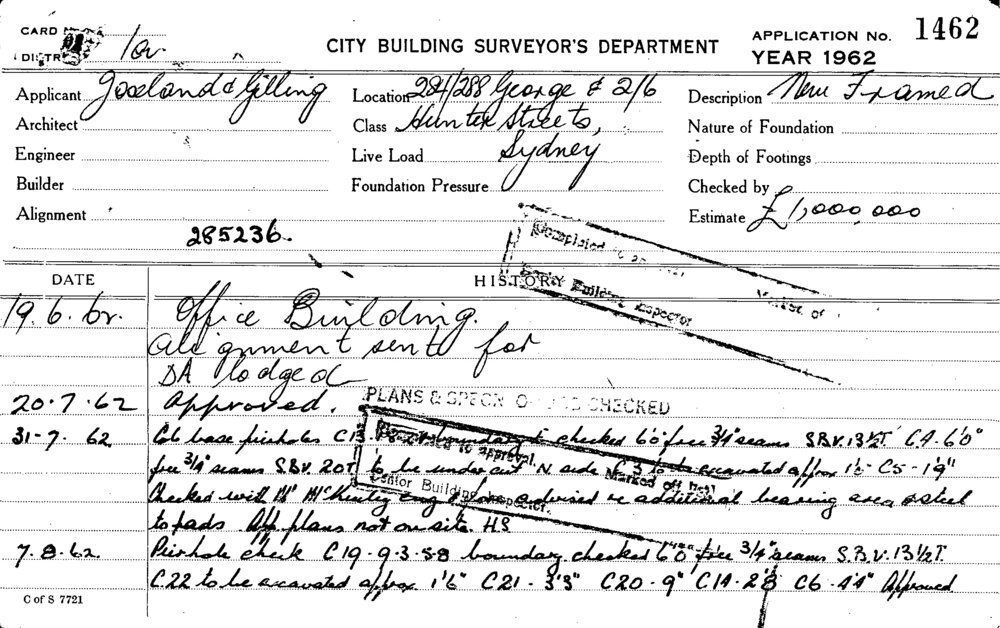 CARD
DISTR
CITY BUILDING SURVEYOR'S DEPARTMENT
APPLICATION No. 1462
YEAR 1962
Applicant Joseland & Gilling
Location 284/288 George & 2/6
Description New Framed
Architect
Class Hunter Streets,
Nature of Foundation
Engineer
Live Load Sydney
Depth of Footings
Builder
Foundation Pressure
Checked by
Alignment
Estimate £1,000,000
285236.
Completed to
Senior Building Inspector
DATE
HISTORY
19.6.62. Office Building.
Alignment sent for
DA lodged
20.7.62 Approved.
PLANS & SPECN CHECKED
31-7.62 Col base pierholes C13 boundary checked 6'0" free 3/4" seams S.B.V. 13½T. C4. 6'0"
free 3/4" seams S.B.V. 20T. to be under cut N side C3 to be excavated approx C5 - 1'9"
Completed to approval.
Marked off
Senior Building Inspector.
Checked with Mr McKinley eng advised re additional bearing area & steel
to pads. App. plans not on site. H.S
7.8.62. Pierhole check C19-9-3-5-8 boundary checked 6'0" free 3/4" seams S.B.V. 13½T.
C.22 to be excavated approx 1'6" C21 - 3'3" C20 - 9" C14 - 2'8 C6 - 4'4" Approved
C of S 7721